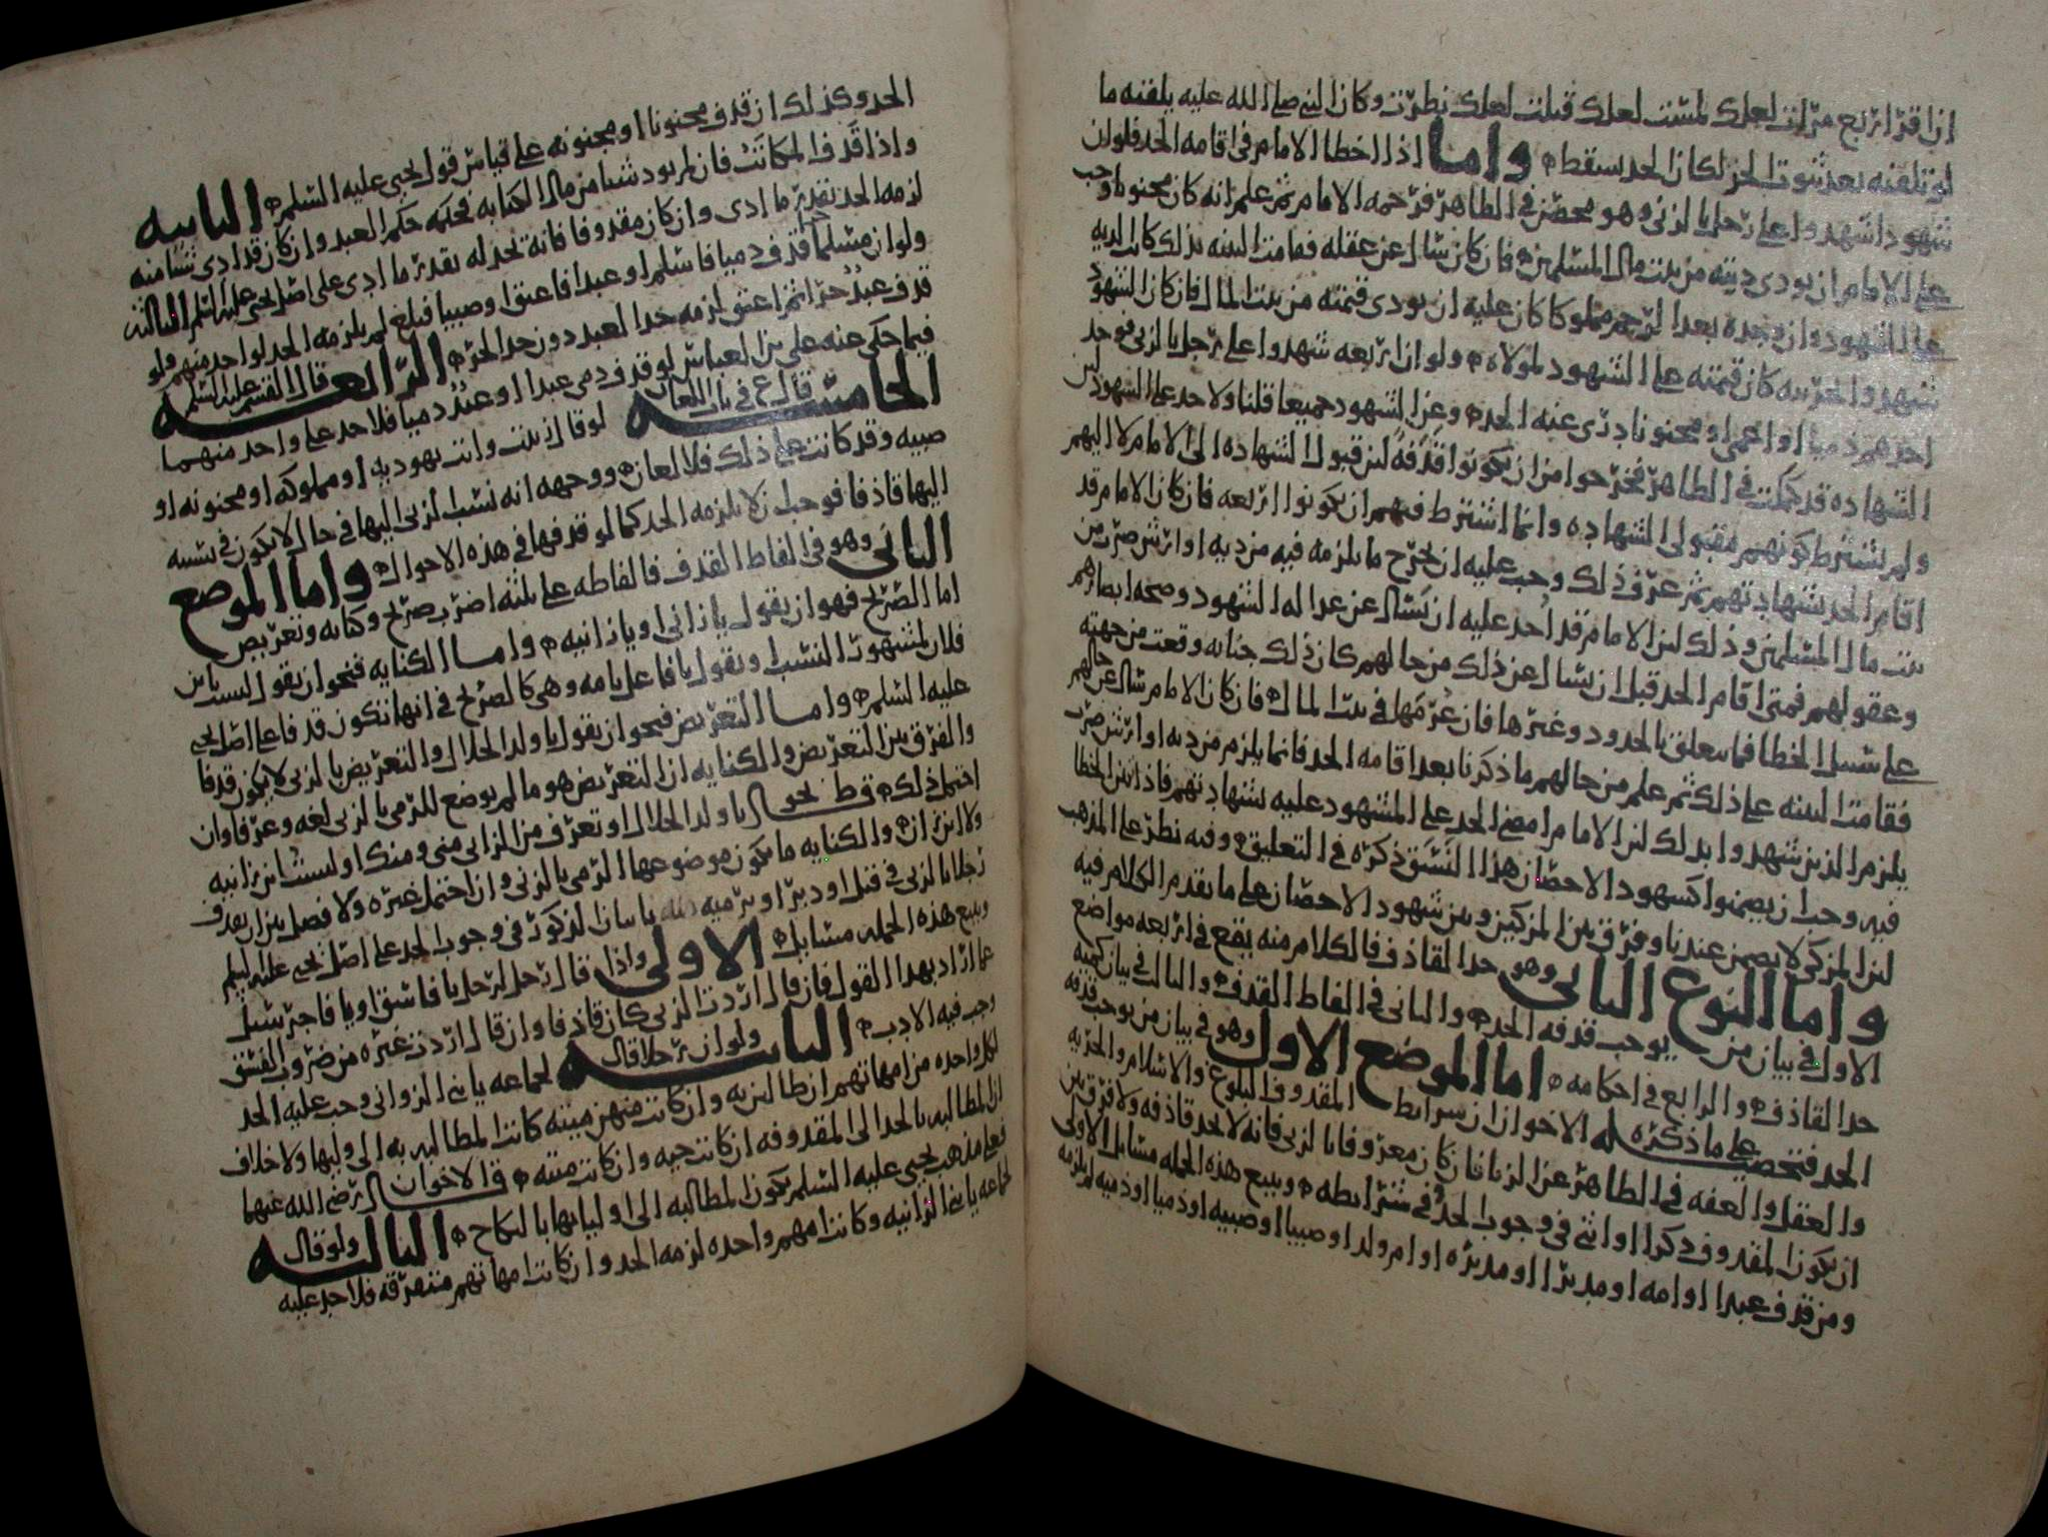 ان اقر اربع مرات لعلك لمست لعلك قبلت لعلك نظرت وكان النبي صلى الله عليه يلقنه ما
لو تلقنه بعد ثبوت الحد لكان الحد يسقط واما اذا اخطا الامام في اقامه الحد فلو ان
شهودا شهدوا على رجل بالزنى وهو محصن في الظاهر فرجمه الامام ثم علم انه كان مجنونا وجب
على الامام ان يودي ديته من بيت مال المسلمين فان كان سال عن عقله فقامت البينه بذلك كانت الديه
على الشهود وان وجده بعد الرجم مملوكا كان عليه ان يودي قيمته من بيت المال فان كان الشهود
شهدوا بالحريه كان قيمته على الشهود لمولاه ولو ان اربعه شهدوا على رجل بالزنى فوجد
احدهم ذميا او اعمى او مجنونا دري عنه الحد وعن الشهود جميعا قلنا ولا حد على الشهود لان
الشهاده قد كملت في الظاهر فخرجوا من ان يكونوا قذفه لان قبول الشهاده الى الامام لا اليهم
ولم يشترط كونهم مقبولي الشهاده وانما اشترط فيهم ان يكونوا اربعه فان كان الامام قد
اقام الحد بشهادتهم ثم عرف ذلك وجب عليه ان يخرج ما يلزمه فيه من ديه او ارش ضرب من
بيت مال المسلمين وذلك لان الامام قد اخذ عليه ان يسال عن عداله الشهود وصحه ابصارهم
وعقولهم فمتى اقام الحد قبل ان يسال عن ذلك من حالهم كان ذلك جنايه وقعت من جهته
على سبيل الخطا فيما يتعلق بالحدود وغيرها فان غرمها في بيت المال فان كان الامام سال عن حالهم
فقامت البينه على ذلك ثم علم من حالهم ما ذكرنا بعد اقامه الحد فانما يلزم من ديه او ارش ضرب
يلزم الذين شهدوا بذلك لان الامام امضى الحد على المشهود عليه بشهادتهم فاذا تبين الخطا
فيه وجب ان يضمنوا كشهود الاحصان هذا النسق ذكره في التعليق وفيه نظر على المذهب
لان المزكي لا يضمن عندنا وفرق بين المزكين وبين شهود الاحصان على ما تقدم الكلام فيه
واما النوع الثاني وهو حد القاذف فالكلام منه يقع في اربعه مواضع
الاول في بيان من يوجب قذفه الحد والثاني في الفاظ القذف والثالث في بيان كميه
حد القاذف والرابع في احكامه اما الموضع الاول وهو في بيان من يوجب قذفه
الحد فتحصيله على ما ذكره الاخوان ان شرايط المقذوف البلوغ والاسلام والحريه
والعقل والعفه في الظاهر عن الزنا فان كان معروفا بالزنى فانه لا يحد قاذفه ولا فرق بين
ان يكون المقذوف ذكرا او انثى في وجوب الحد في شرايطه ويتبع هذه الجمله مسايل الاولى
ومن قذف عبدا او امه او مدبرا او مدبره او ام ولد او صبيا او صبيه او ذميا او ذميه لم يلزمه
الحد وكذلك ان قذف مجنونا او مجنونه على قياس قول يحيى عليه السلم الثانيه
واذا قذف المكاتب فان لم يود شيا من مال الكتابه فحكمه حكم العبد وان كان قد ادى شيا منه
لزمه الحد بقدر ما ادى وان كان مقذوفا فانه يحد له بقدر ما ادى على اصل يحيى عليه السلم الثالثه
ولو ان مسلما حرا قذف ذميا فاسلم او عبدا فاعتق او صبيا فبلغ لم يلزمه الحد لواحد منهم فلو
قذف عبد حرا ثم اعتق لزمه حد العبد دون حد الحر الرابعه قال القسم عليه السلم
فيما حكى عنه علي بن العباس لو قذف ذمي عبدا او عبد ذميا فلا حد على واحد منهما
الخامسه قال ع في باب اللعان لو قال زنيت وانت يهوديه او مملوكه او مجنونه او
صبيه وقد كانت على ذلك فلا لعان ووجهه انه نسب الزنى اليها في حال لا يكون في نسبه
اليها قاذفا فوجب ان لا يلزمه الحد كما لو قذفها في هذه الاحوال واما الموضع
الثاني وهو في الفاظ القذف فالفاظه على ثلثه اضرب صريح وكنايه وتعريض
اما الصريح فهو ان يقول يا زاني او يا زانيه واما الكنايه فنحو ان يقول لست بابن
فلان لمشهور النسب او يقول يا فاعل بامه وهي كالصريح في انها تكون قذفا على اصل يحيى
عليه السلم واما التعريض فنحو ان يقول يا ولد الحلال والتعريض بالزنى لا يكون قذفا
والفرق بين التعريض والكنايه ان التعريض هو ما لم يوضع للرمي بالزنى لغه وعرفا وان
احتمل ذلك قط نحو يا ولد الحلال او تعرف من الزاني مني ومنك او لست ابن زانيه
ولا ابن زان والكنايه ما يكون موضوعها الرمي بالزنى وان احتمل غيره ولا فصل بين ان يقذف
رجلا بالزنى في قبل او دبر او يرميه بانه ياتي الذكور في وجوب الحد على اصل يحيى عليه السلم
ويتبع هذه الجمله مسايل الاولى واذا قال رجل لرجل يا فاسق او يا فاجر سيل
عما اراد بهذا القول فان قال اردت الزنى كان قاذفا وان قال اردت غيره من ضروب الفسق
وجب فيه الادب الثانيه ولو ان رجلا قال لجماعه يا بني الزواني وجب عليه الحد
لكل واحده من امهاتهم ان طالبن به وان كانت منهن ميته كانت المطالبه به الى وليها ولا خلاف
ان المطالبه بالحد الى المقذوفه ان كانت حيه وان كانت ميته قال الاخوان رضي الله عنهما
فعلى مذهب يحيى عليه السلم يكون المطالبه الى اوليايها بالنكاح الثالثه ولو قال
لجماعه يا بني الزانيه وكانت امهم واحده لزمه الحد وان كانت امهاتهم متفرقه فلا حد عليه